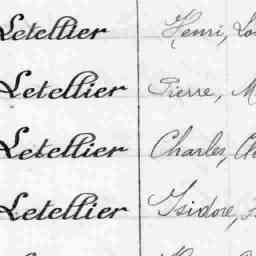 Letellier Henri,
Letellier Pierre,
Letellier Charles,
Letellier Isidore,